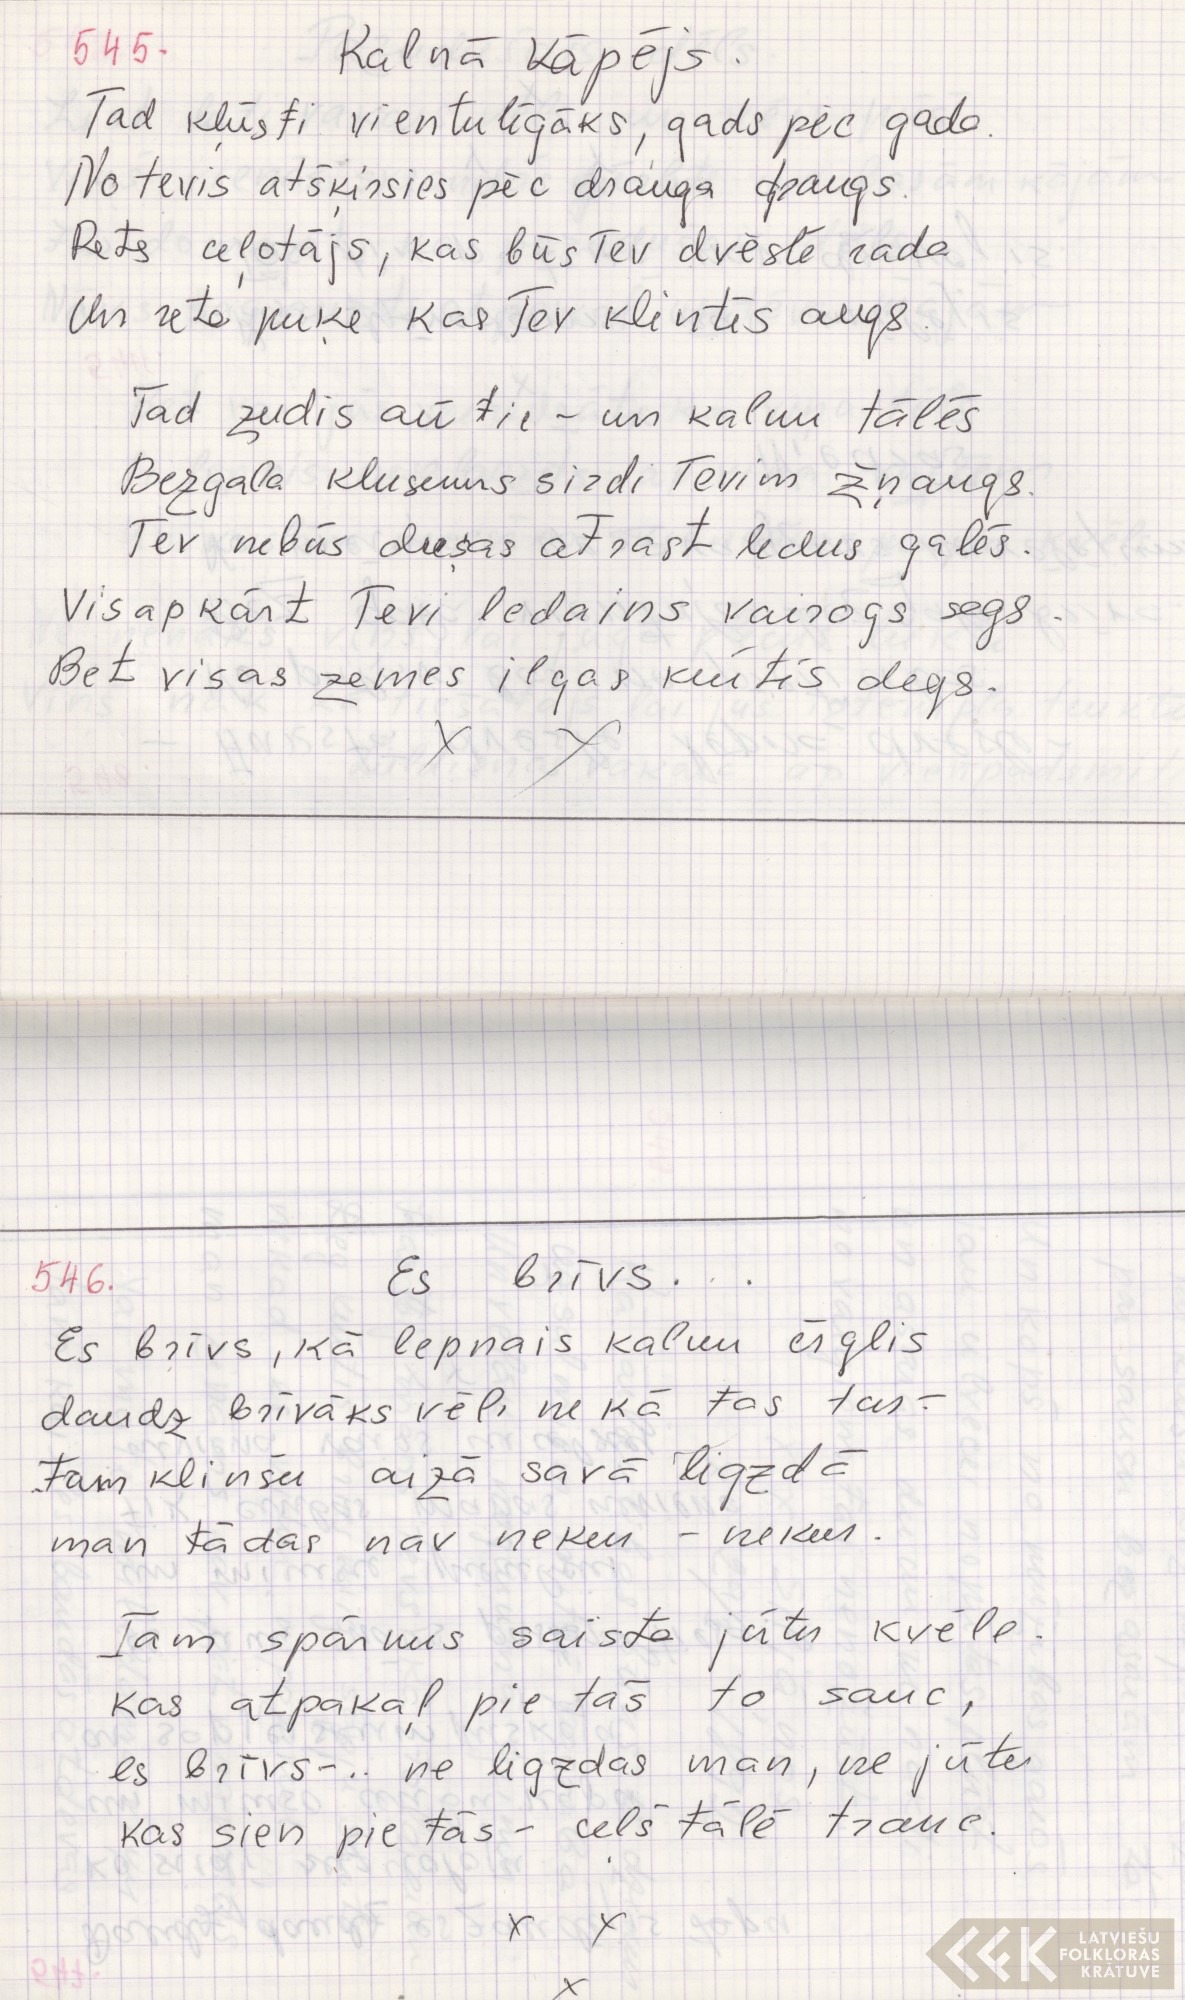 545. Kalnā kāpējs.
Tad kļūsti vientulīgāks, gads pēc gada.
No tevis atšķirsies pēc drauga draugs.
Rets ceļotājs, kas būs Tev dvēslē rada
Un reta puķe kas Tev klintīs augs.
Tad zudīs arī tie - un kalnu tālēs
Bezgala klusums sirdi Tevim žņaugs.
Tev nebūs dusas atrast ledus galēs.
Visapkārt Tevi ledains vairogs segs.
Bet visas zemes ilgas krūtīs degs.
x x
546. Es brīvs...
Es brīvs, kā lepnais kalnu ērglis
daudz brīvāks vēl, nekā tas tur -
tam klinšu aizā savā ligzdā -
man tādas nav nekur - nekur.
Tam spārnus saista jūtu kvēle.
kas atpakaļ pie tās to sauc,
es brīvs-.. ne ligzdas man, ne jūtu
kas sien pie tās - ceļš tālē trauc.
x x
x
LATVIEŠU
FOLKLORAS
KRĀTUVE